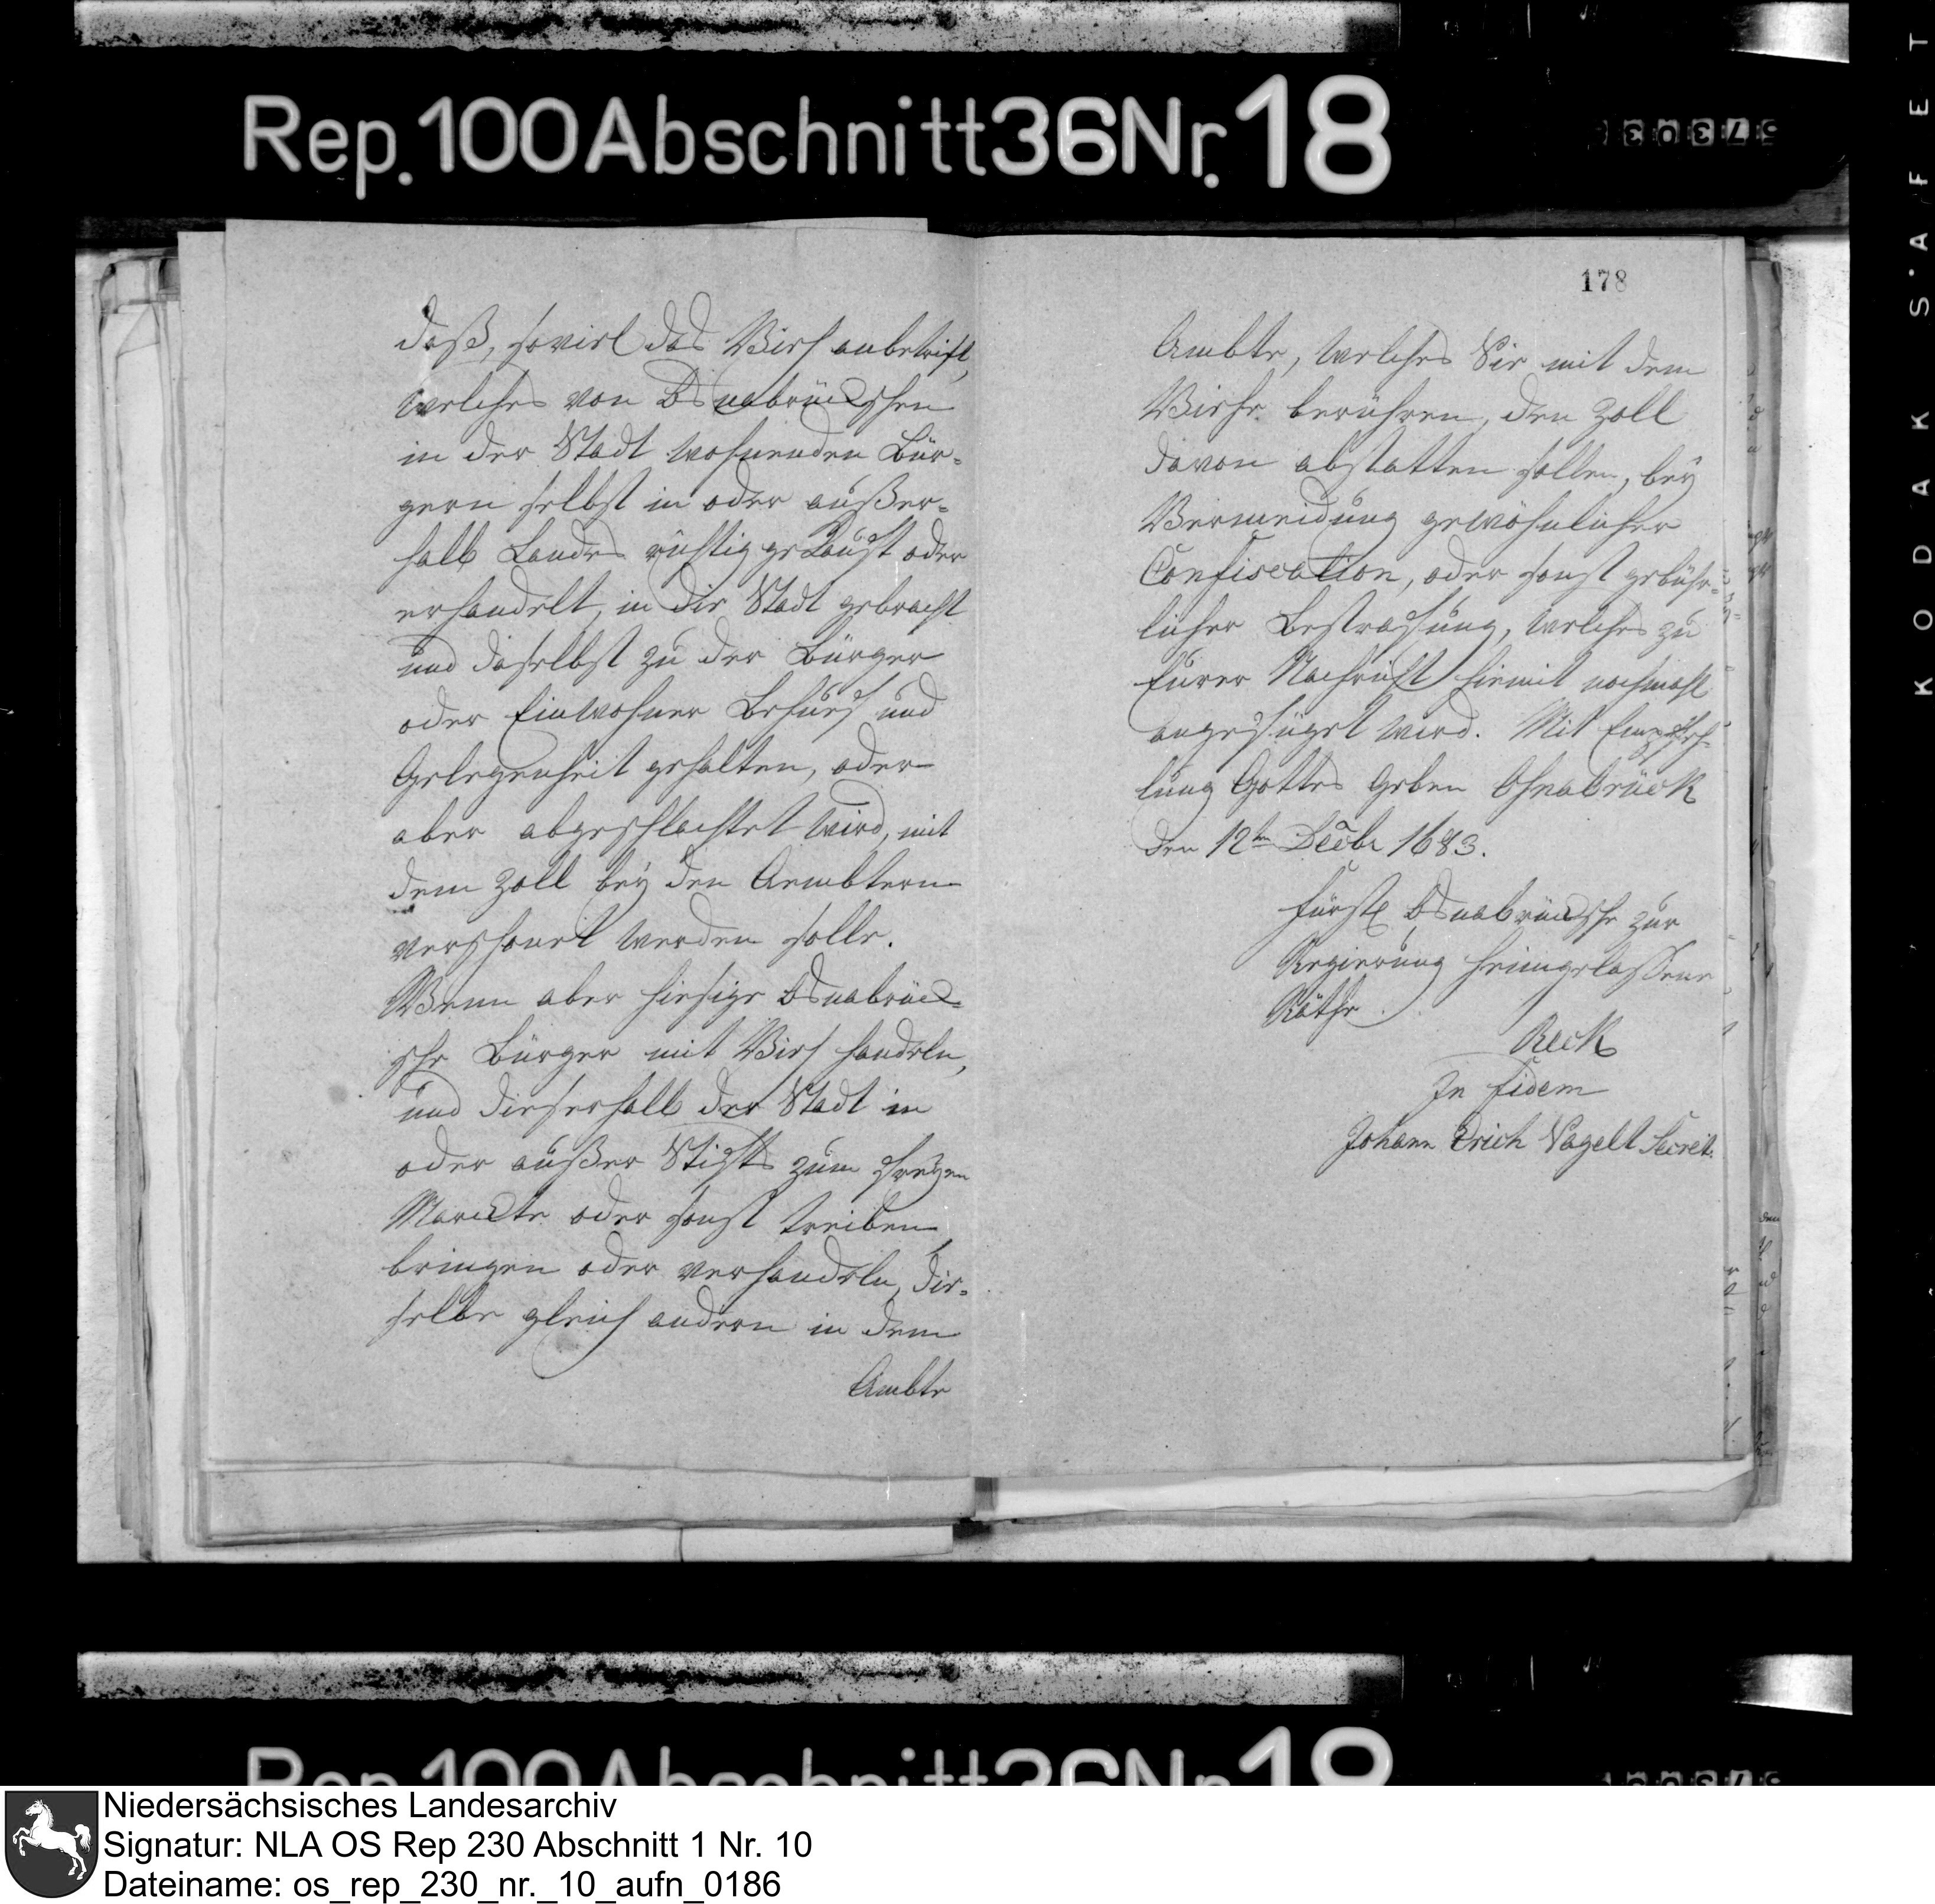 Rep. 100 Abschnitt 36 Nr. 18
daß, soviel das Vieh anbetrift,
welches von Osnabrückschen
in der Stadt wohnenden Bür-
gern selbst in oder außer-
halb Landes richtig gekauft oder
erhandelt, in die Stadt gebracht
und daselbst zu der Bürger
oder Einwohner Behuef und
Gelegenheit gehalten, oder
aber abgeschlachtet wird, mit
dem Zoll bey den Aembtern
verschonet werden solle.
Wenn aber hiesige Osnabrück-
sche Bürger mit Vieh handeln,
und dieserhalb der Stadt in
oder außer Stifts zum freyen
Marckte oder sonst treiben,
bringen oder verhandeln, die-
selbe gleich andern in dem
Ambte
178
Ambte, welches Sie mit dem
Viehe berühren, den Zoll
davon abstatten sollen, bey
Vermeidung gewöhnlicher
Confiscation, oder sonst gebühr-
licher Bestrafung, welches zu
Eurer Nachricht hiemit nochmahl
angefüget wird. Mit Empfeh-
lung Gottes Geben Osnabrück
den 12ten Decbr 1683.
Fürstl Osnabrücksche zur
Regierung heimgelassene
Räthe
Reck
In fidem
Johann Erich Vagelt Secret.
KODAK S'AFET
Rep. 100 Abschnitt 36 Nr. 18
Niedersächsisches Landesarchiv
Signatur: NLA OS Rep 230 Abschnitt 1 Nr. 10
Dateiname: os_rep_230_nr._10_aufn_0186